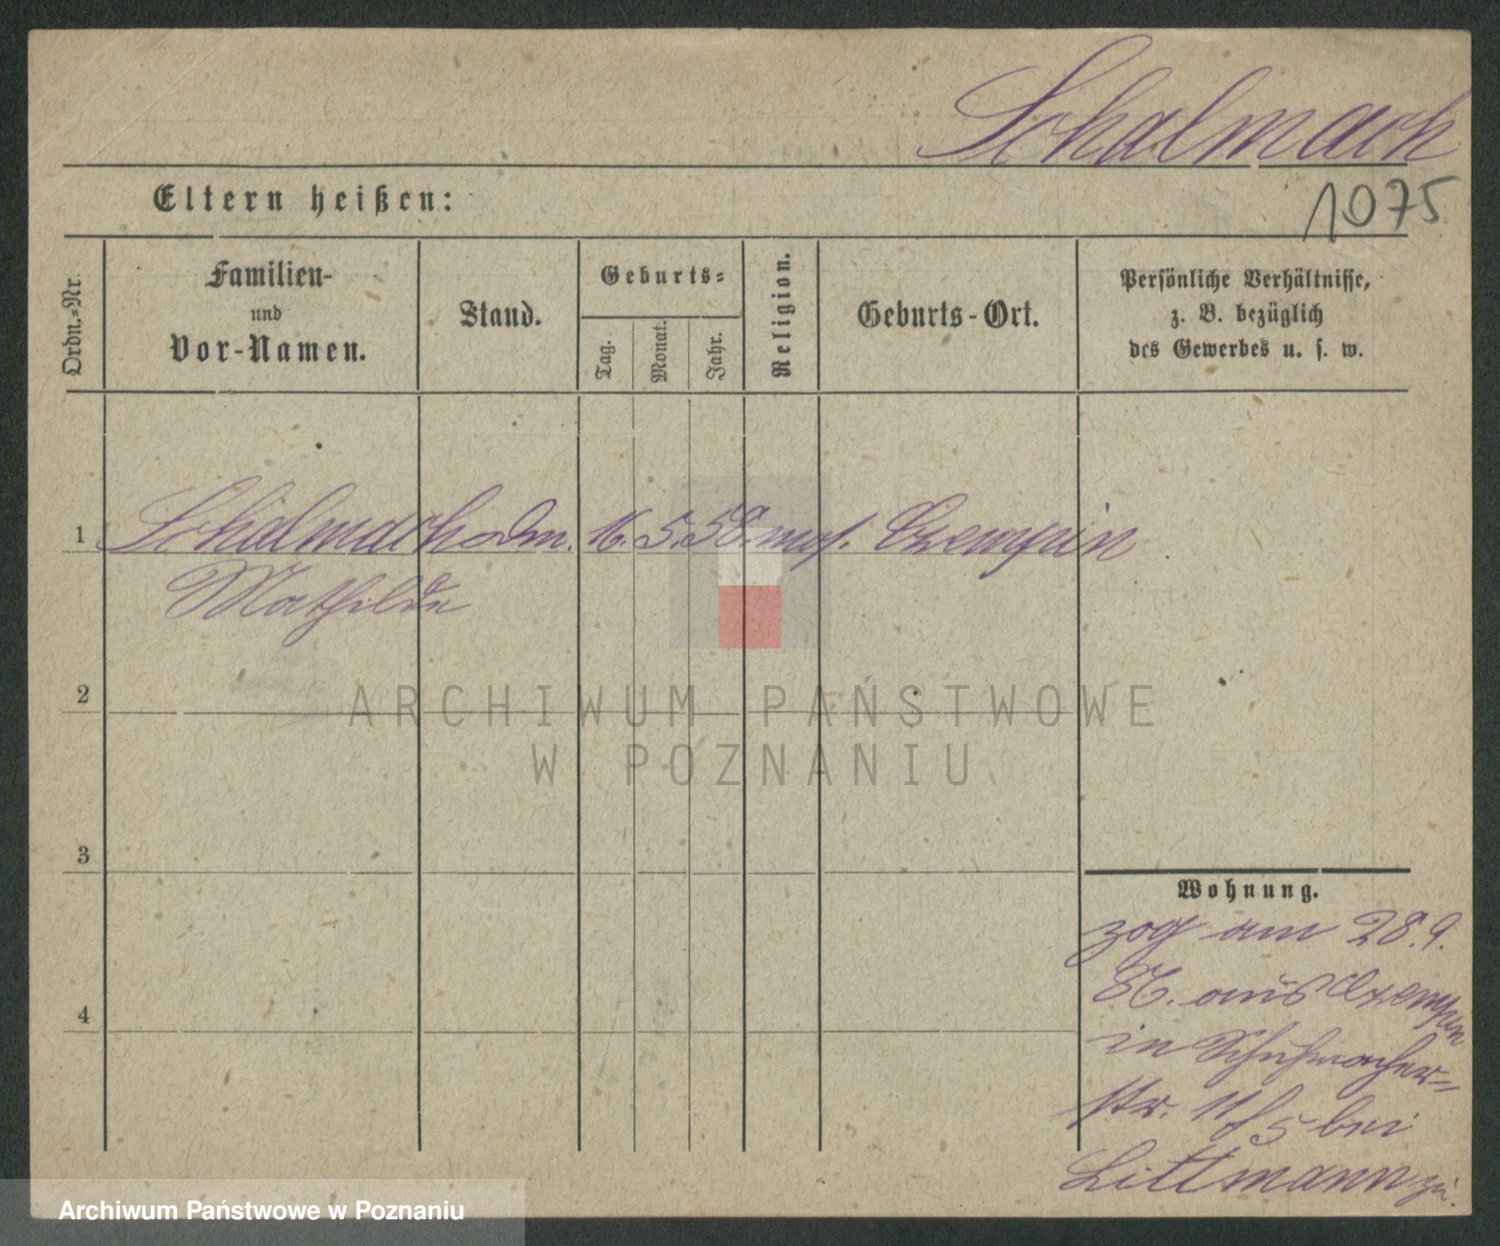 Schalmach
Eltern heißen:
1075
Ordn.-Nr.
Familien-
und
Vor-Namen.
Stand.
Geburts-
Tag.
Monat.
Jahr.
Religion.
Geburts-Ort.
Persönliche Verhältnisse,
z. B. bezüglich
des Gewerbes u. s. w.
1 Schalmach 16. 5. 58. mos. Czempin
Mathilde
2
ARCHIWUM PAŃSTWOWE
W POZNANIU
3
Wohnung.
zog am 28. 9.
aus Czempin
4
in Schuhmacher-
str. 11/5 bei
Littmann zu.
Archiwum Państwowe w Poznaniu